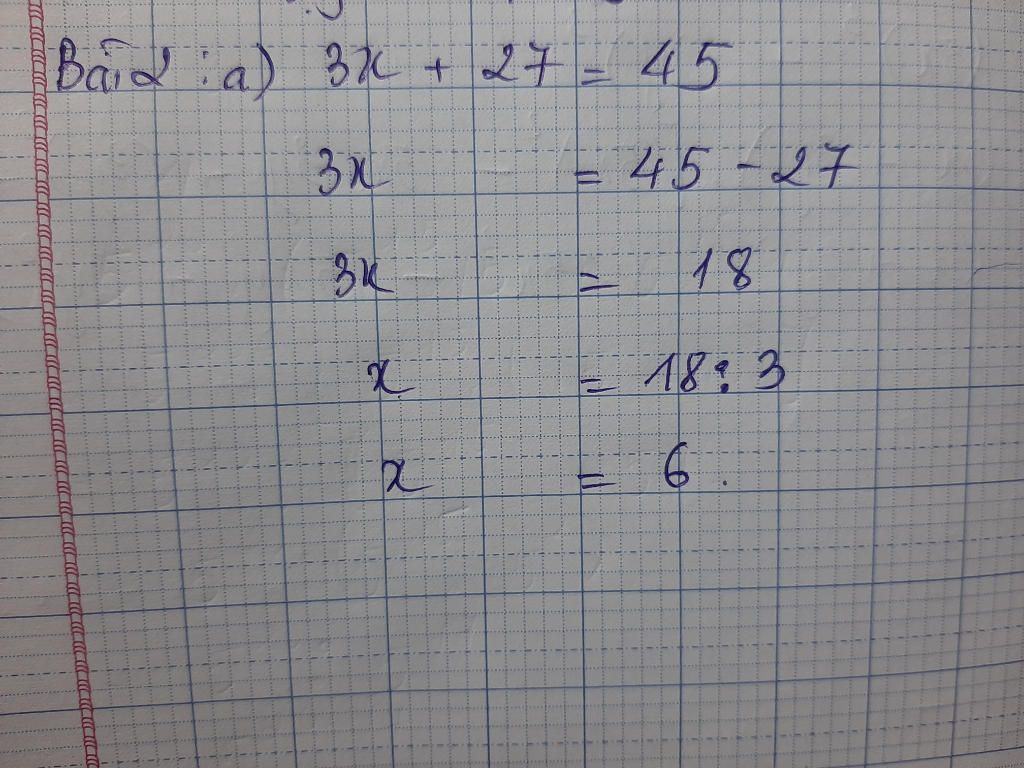 Bài 2 : a) 3x + 27 = 45
3x = 45 - 27
3x = 18
x = 18 : 3
x = 6.